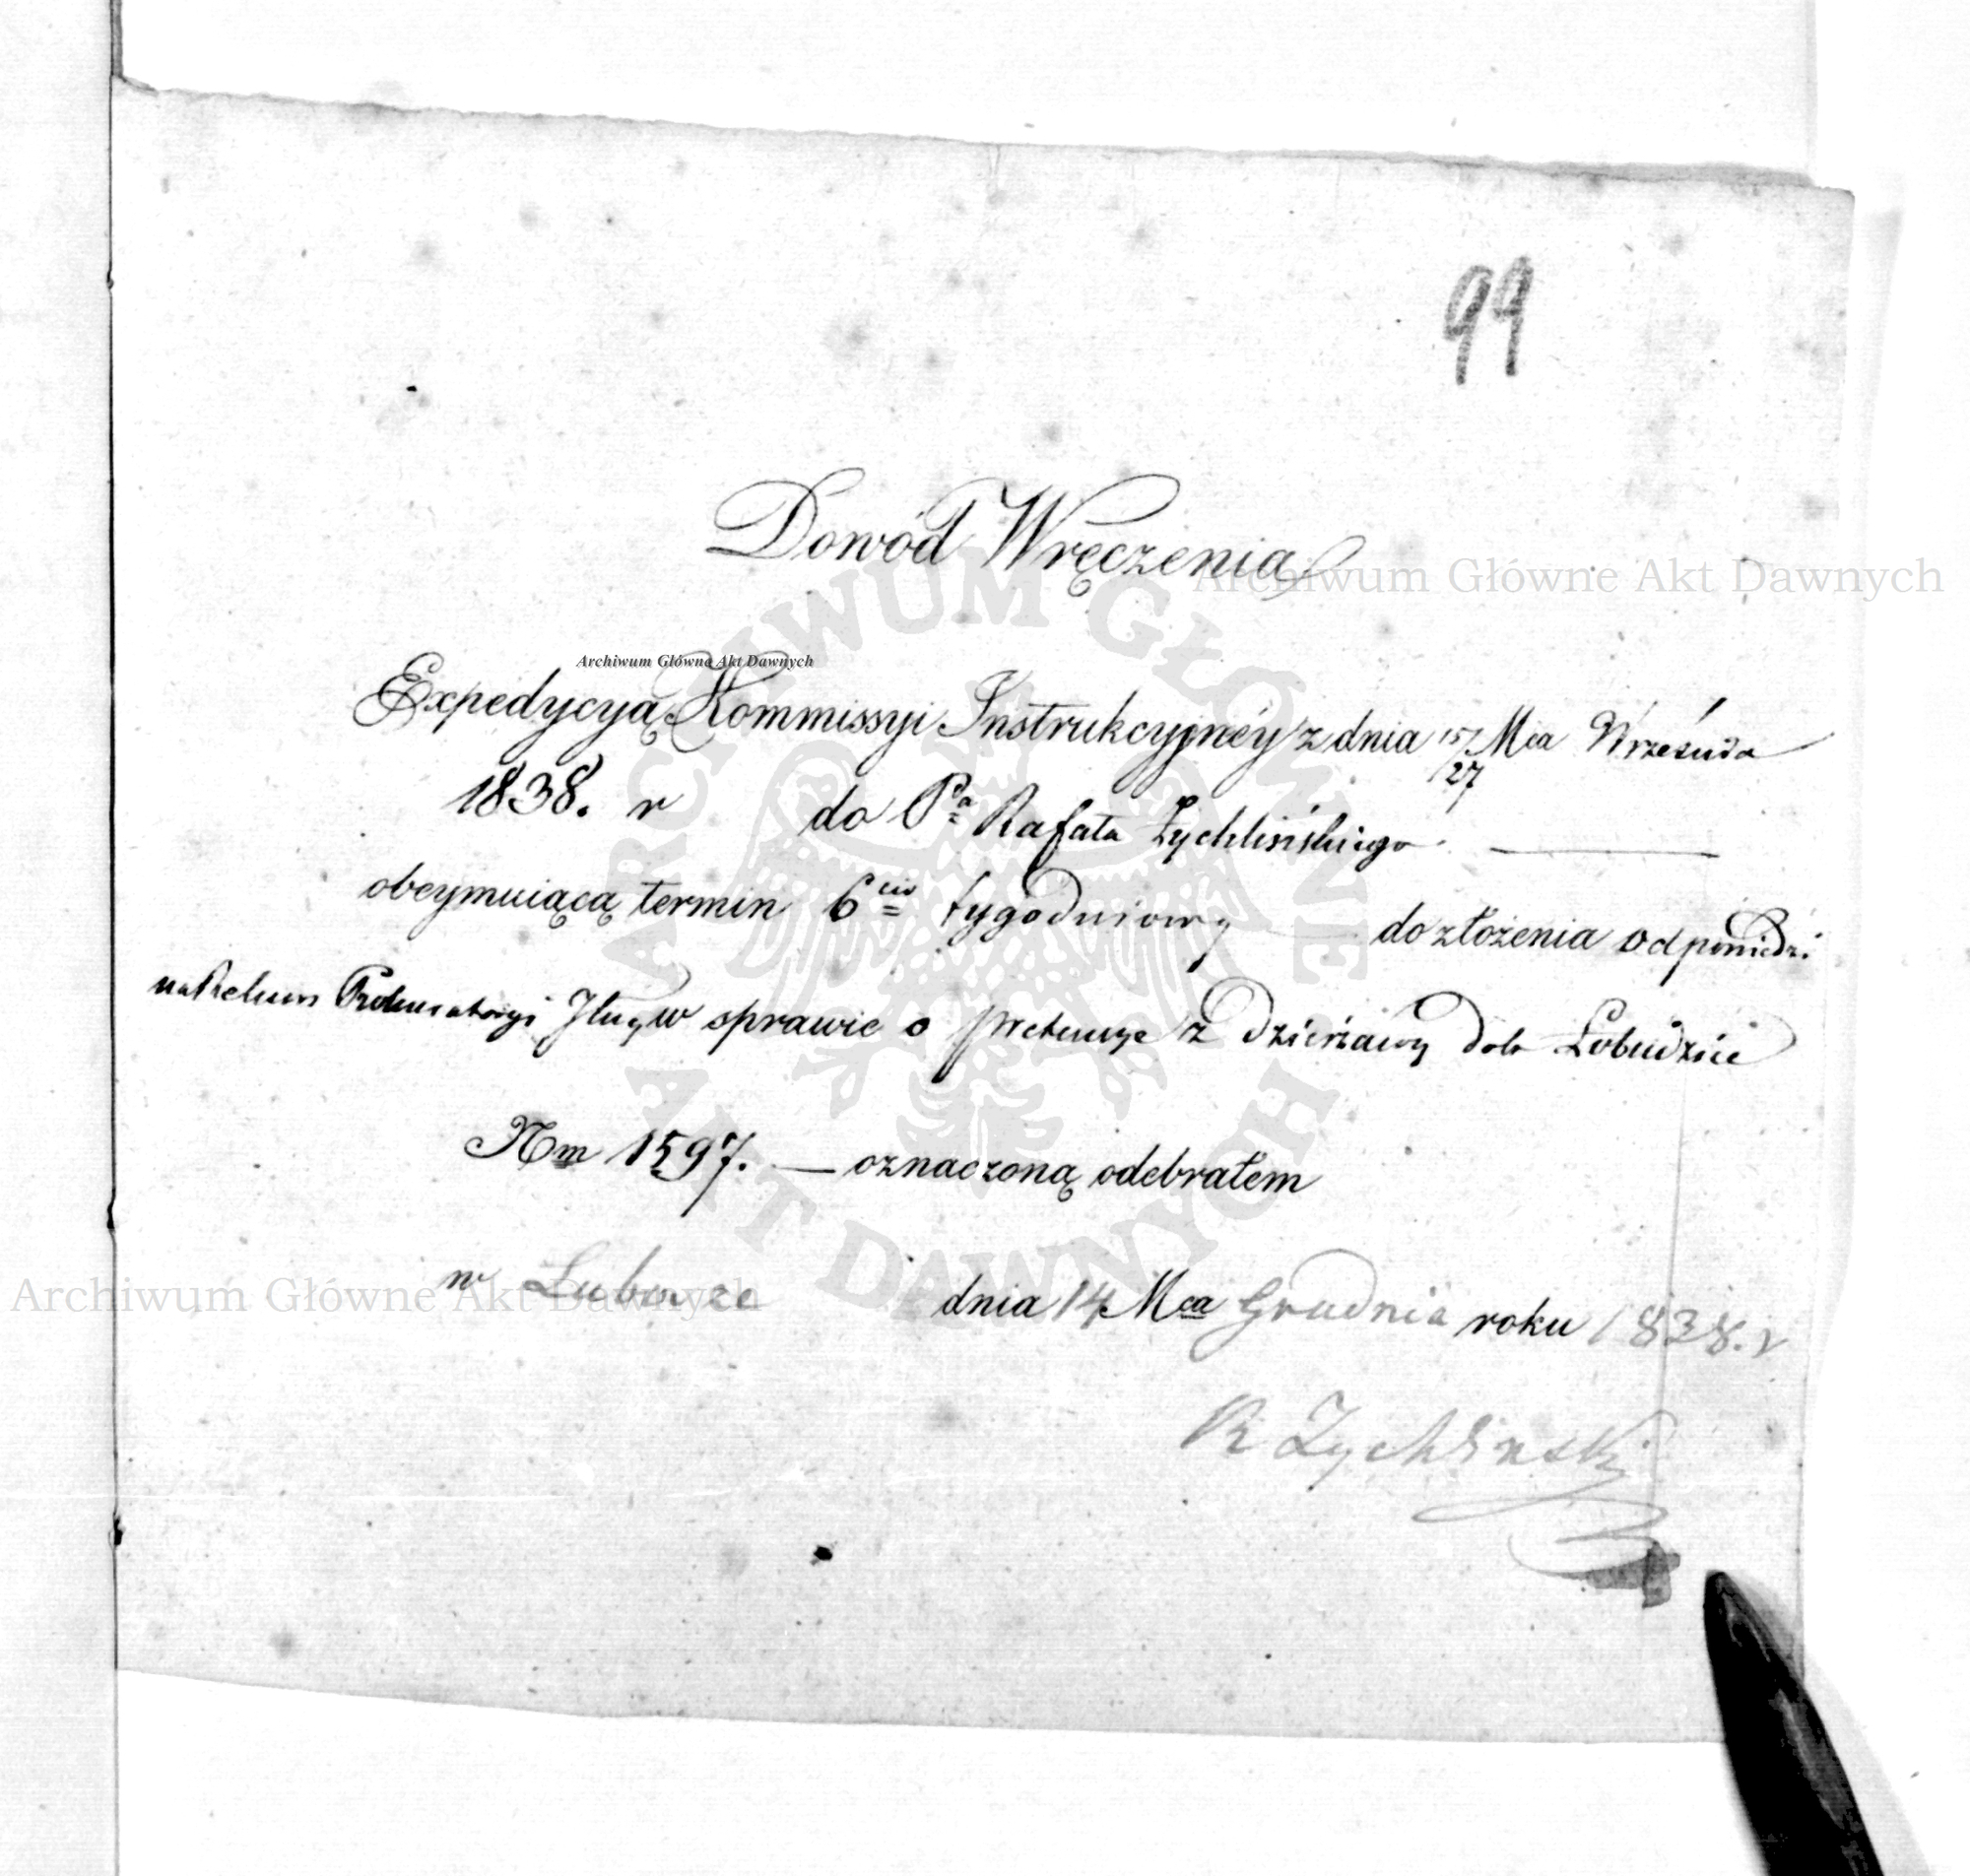 99
Dowód Wręczenia
Archiwum Główne Akt Dawnych
Archiwum Główne Akt Dawnych
Expedycyą Kommissyi Instrukcyjnéy z dnia 15/27 Mca Września
1838. r do Pa Rafała Żychlińskiego
obeymuiącą termin 6cio tygodniowy do złożenia odpowiedzi
na Rekurs Prokuratoryi w sprawie o pretensye z dzierżawy dóbr Łobudzice
Nm 1597. — oznaczoną odebrałem
w dnia 14 Mca Grudnia roku 1838. r
Archiwum Główne Akt Dawnych
R Zychlinski
ARCHIWUM GŁÓWNE
AKT DAWNYCH